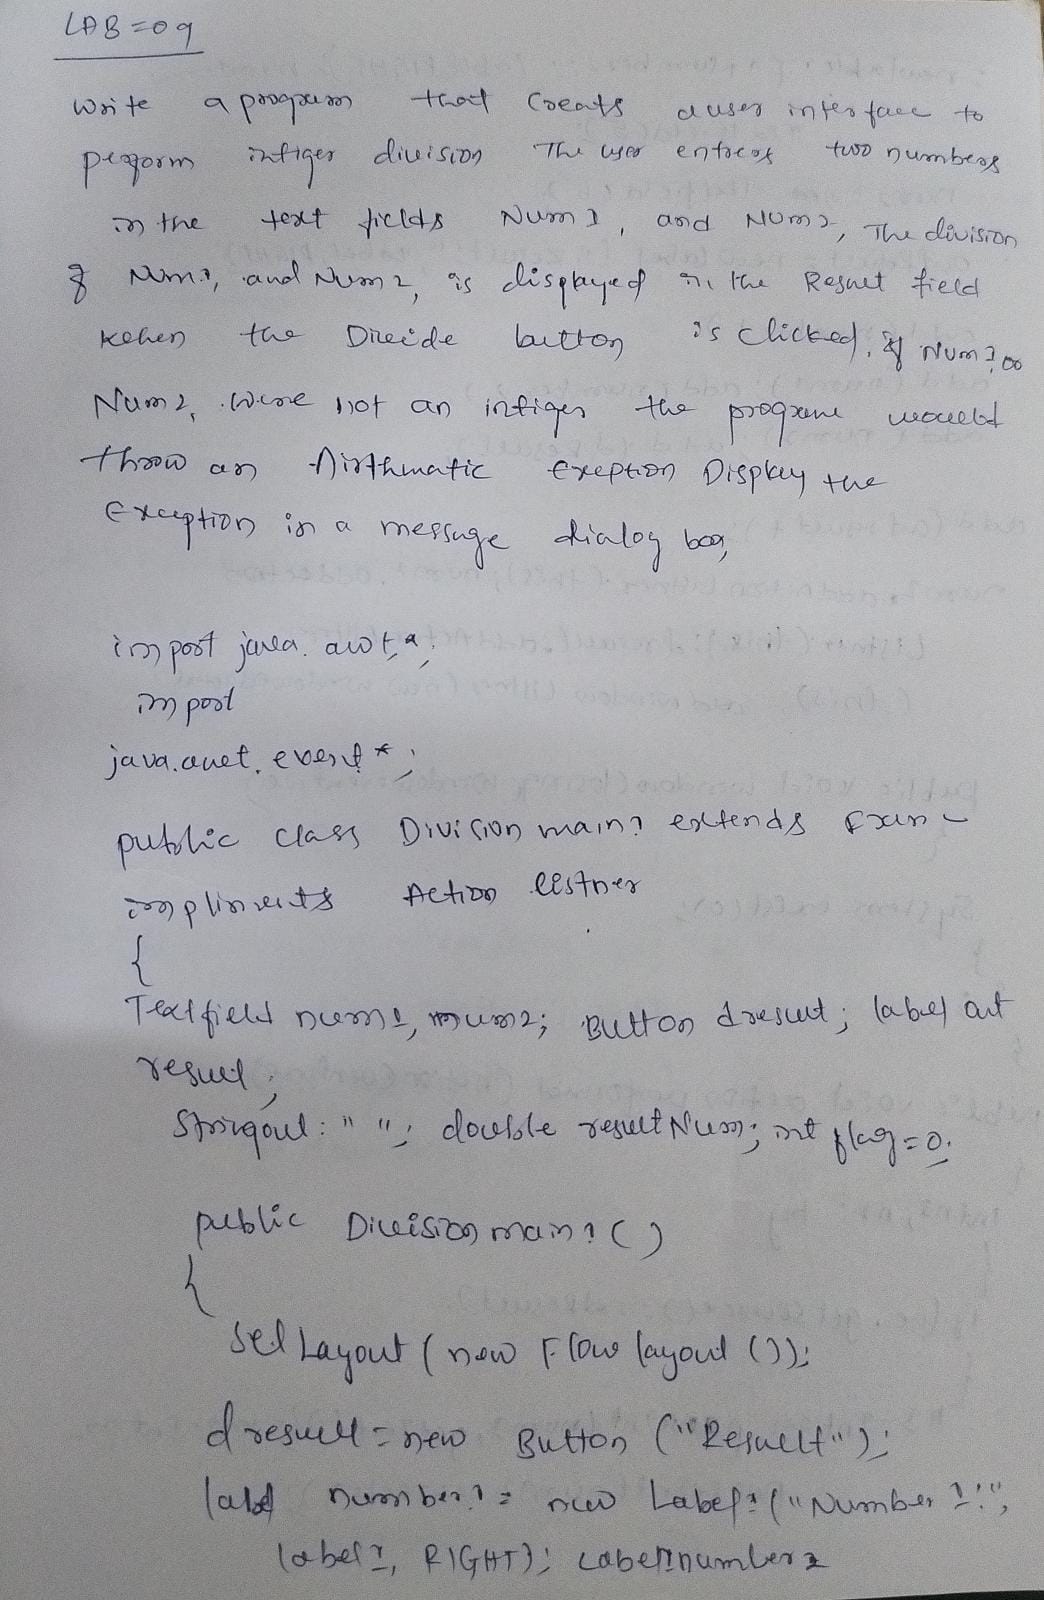 LAB=09
Write a program that Creats a user interface to
perform intiger division The user entrers two numbers
in the text fields Num1, and Num2, The division
of Num1, and Num2, is displayed in the Result field
when the Divide button is clicked, if Num1 or
Num2, were not an intiger the programe would
throw an Airthmatic Exeption Display the
Exception in a message dialog box,
import java. awt.*;
import
java.awt. event*;
public class Division main1 extends Fram
implinents Action listner
{
Textfield num1, num2; Button dresult; label out
result;
Stringout: " "; double resultNum; int flag=0;
public Division main1()
{
set Layout (new Flow layout ());
dresult = new Button ("Result");
label number1 = new Label1("Number 1!",
label1, RIGHT); Label1number2